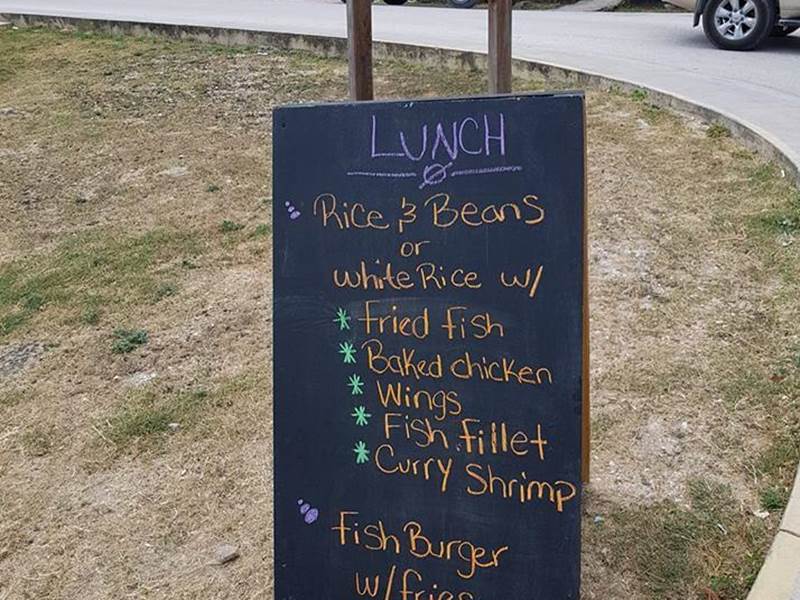 LUNCH
Rice & Beans
or
white Rice w/
* Fried fish
* Baked chicken
* Wings
* Fish fillet
* Curry Shrimp
fish Burger
w/fries